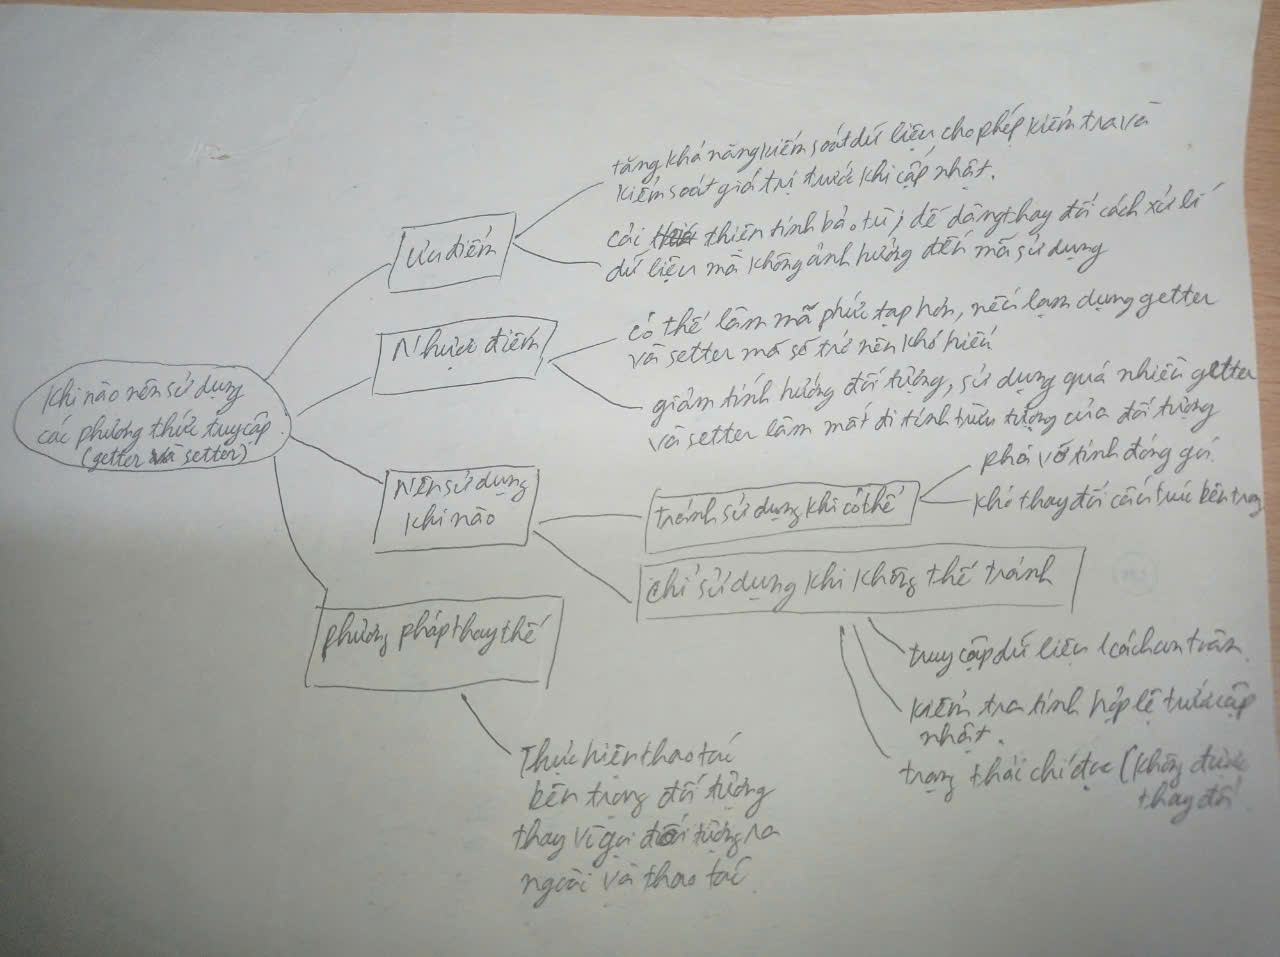 khi nào nên sử dụng
các phương thức truy cập
(getter và setter)
Ưu điểm
tăng khả năng kiểm soát dữ liệu cho phép kiểm tra và
kiểm soát giá trị trước khi cập nhật.
cải thiện tính bảo trì, dễ dàng thay đổi cách xử lí
dữ liệu mà không ảnh hưởng đến mã sử dụng
Nhược điểm
có thể làm mã phức tạp hơn, nếu lạm dụng getter
và setter mã sẽ trở nên khó hiểu
giảm tính hướng đối tượng, sử dụng quá nhiều getter
và setter làm mất đi tính trừu tượng của đối tượng
Nên sử dụng
khi nào
tránh sử dụng khi có thể
phá vỡ tính đóng gói.
khó thay đổi cấu trúc bên trong
chỉ sử dụng khi không thể tránh
truy cập dữ liệu 1 cách an toàn.
kiểm tra tính hợp lệ trước cập
nhật.
trạng thái chỉ đọc (không được
thay đổi
phương pháp thay thế
Thực hiện thao tác
bên trong đối tượng
thay vì gọi đối tượng ra
ngoài và thao tác